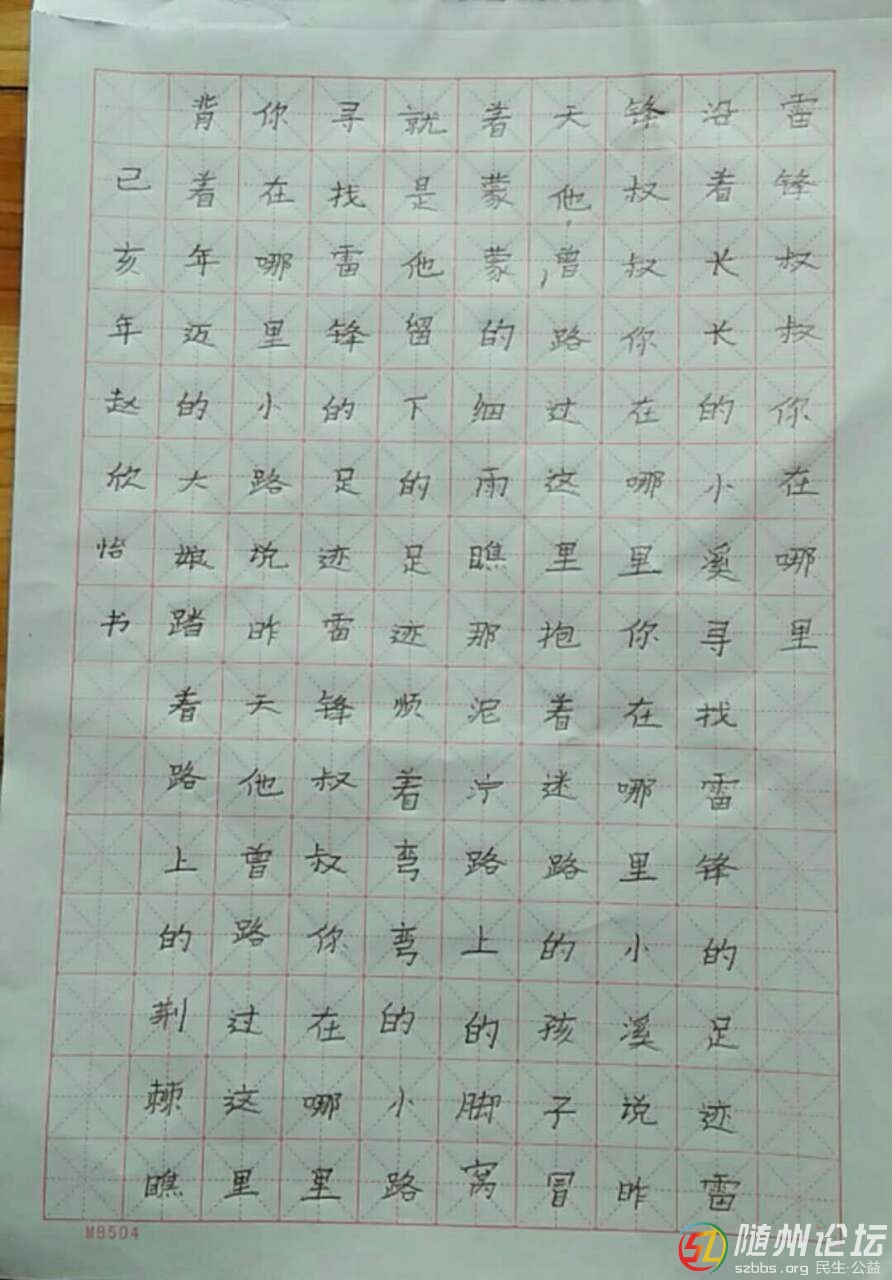 雷锋叔叔你在哪里
沿着长长的小溪寻找雷锋的足迹雷
锋叔叔你在哪里你在哪里小溪说昨
天他,曾路过这里抱着迷路的孩子冒
着蒙蒙的细雨瞧那泥泞路上的脚窝
就是他留下的足迹顺着弯弯的小路
寻找雷锋的足迹雷锋叔叔你在哪里
你在哪里小路说昨天他曾路过这里
背着年迈的大娘踏着路上的荆棘瞧
己亥年赵欣怡书
M8504
随州论坛
szbbs.org 民生·公益